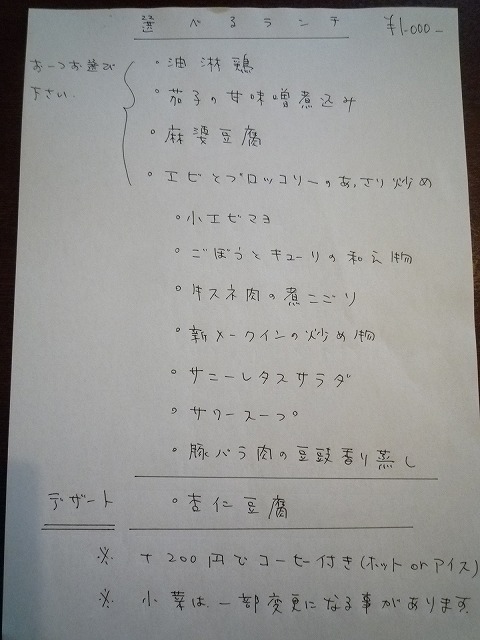 選べるランチ ¥1.000-
お一つお選び
下さい.
・油淋鶏
・茄子の甘味噌煮込み
・麻婆豆腐
・エビとブロッコリーのあっさり炒め
・小エビマヨ
・ごぼうとキューリの和え物
・牛スネ肉の煮こごり
・新メークインの炒め物
・サニーレタスサラダ
・サワースープ
・豚バラ肉の豆豉香り蒸し
デザート ・杏仁豆腐
※ +200円でコーヒー付き(ホットorアイス)
※ 小菜は、一部変更になる事があります.